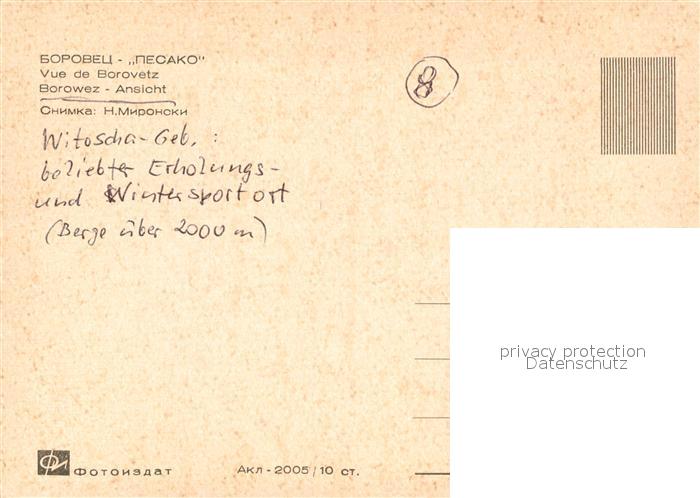 БОРОВЕЦ - „ПЕСАКО"
Vue de Borovetz
Borowez - Ansicht
Снимка: Н.Миронски
8
Witoscha-Geb. :
beliebter Erholungs-
und Wintersportort
(Berge über 2000 m)
privacy protection
Datenschutz
ФИ Фотоиздат
Акл - 2005/10 ст.